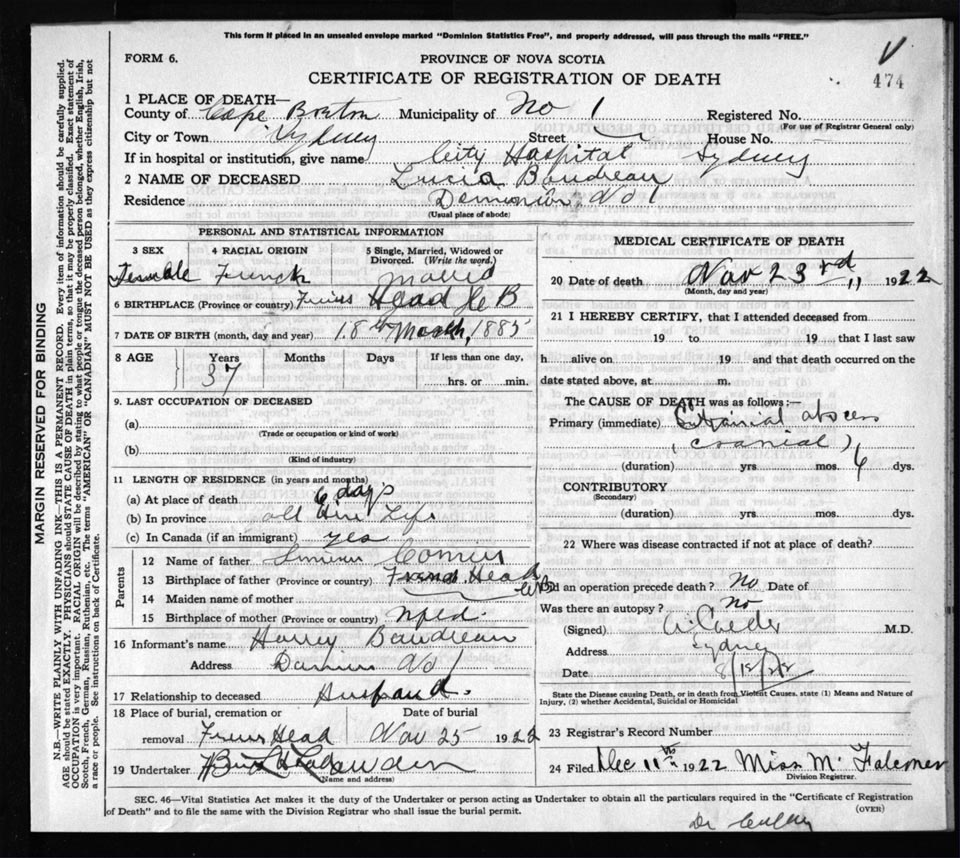 This form if placed in an unsealed envelope marked "Dominion Statistics Free", and properly addressed, will pass through the mails "FREE."
FORM 6.
PROVINCE OF NOVA SCOTIA
474
CERTIFICATE OF REGISTRATION OF DEATH
1 PLACE OF DEATH—
County of Cape Breton Municipality of No 1 Registered No.
(For use of Registrar General only)
City or Town Sydney Street House No.
If in hospital or institution, give name City Hospital Sydney
2 NAME OF DECEASED Lucia Boudreau
Residence Dominion No 1
(Usual place of abode)
PERSONAL AND STATISTICAL INFORMATION
3 SEX 4 RACIAL ORIGIN 5 Single, Married, Widowed or Divorced. (Write the word.)
Female French
6 BIRTHPLACE (Province or country) Head C B
7 DATE OF BIRTH (month, day and year) 18th March, 1885
8 AGE Years Months Days If less than one day,
37 hrs. or min.
9. LAST OCCUPATION OF DECEASED
(a)
(Trade or occupation or kind of work)
(b)
(Kind of industry)
11 LENGTH OF RESIDENCE (in years and months)
(a) At place of death 6 days
(b) In province all Life
(c) In Canada (if an immigrant) yes
Parents
12 Name of father
13 Birthplace of father (Province or country) Head CB
14 Maiden name of mother
15 Birthplace of mother (Province or country)
16 Informant's name Harry Boudreau
Address No 1
17 Relationship to deceased Husband.
18 Place of burial, cremation or removal Head
Date of burial Nov 25 1922
19 Undertaker
(Name and address)
MEDICAL CERTIFICATE OF DEATH
20 Date of death Nov 23rd 1922
(Month, day and year)
21 I HEREBY CERTIFY, that I attended deceased from
19 to 19 that I last saw
h alive on 19 and that death occurred on the
date stated above, at m.
The CAUSE OF DEATH was as follows:—
Primary (immediate) abscess
(cranial)
(duration) yrs. mos. 6 dys.
CONTRIBUTORY
(Secondary)
(duration) yrs. mos. dys.
22 Where was disease contracted if not at place of death?
Did an operation precede death? No Date of
Was there an autopsy? No
(Signed) M.D.
Address Sydney
Date 8/12/22
State the Disease causing Death, or in death from Violent Causes, state (1) Means and Nature of
Injury, (2) whether Accidental, Suicidal or Homicidal
23 Registrar's Record Number
24 Filed Dec 11th 1922 Miss M. Falconer
Division Registrar.
SEC. 46—Vital Statistics Act makes it the duty of the Undertaker or person acting as Undertaker to obtain all the particulars required in the "Certificate of Registration
of Death" and to file the same with the Division Registrar who shall issue the burial permit.
(OVER)
MARGIN RESERVED FOR BINDING
N.B.—WRITE PLAINLY WITH UNFADING INK—THIS IS A PERMANENT RECORD. Every item of information should be carefully supplied.
AGE should be stated EXACTLY. PHYSICIANS should STATE CAUSE OF DEATH in plain terms, so that it may be properly classified. Exact statement of
OCCUPATION is very important. RACIAL ORIGIN will be described by stating to what people or tongue the deceased person belonged, whether English, Irish,
Scotch, French, German, Russian, Ruthenian, etc. The terms "AMERICAN" OR "CANADIAN" MUST NOT BE USED as they express citizenship but not
a race or people. See instructions on back of Certificate.